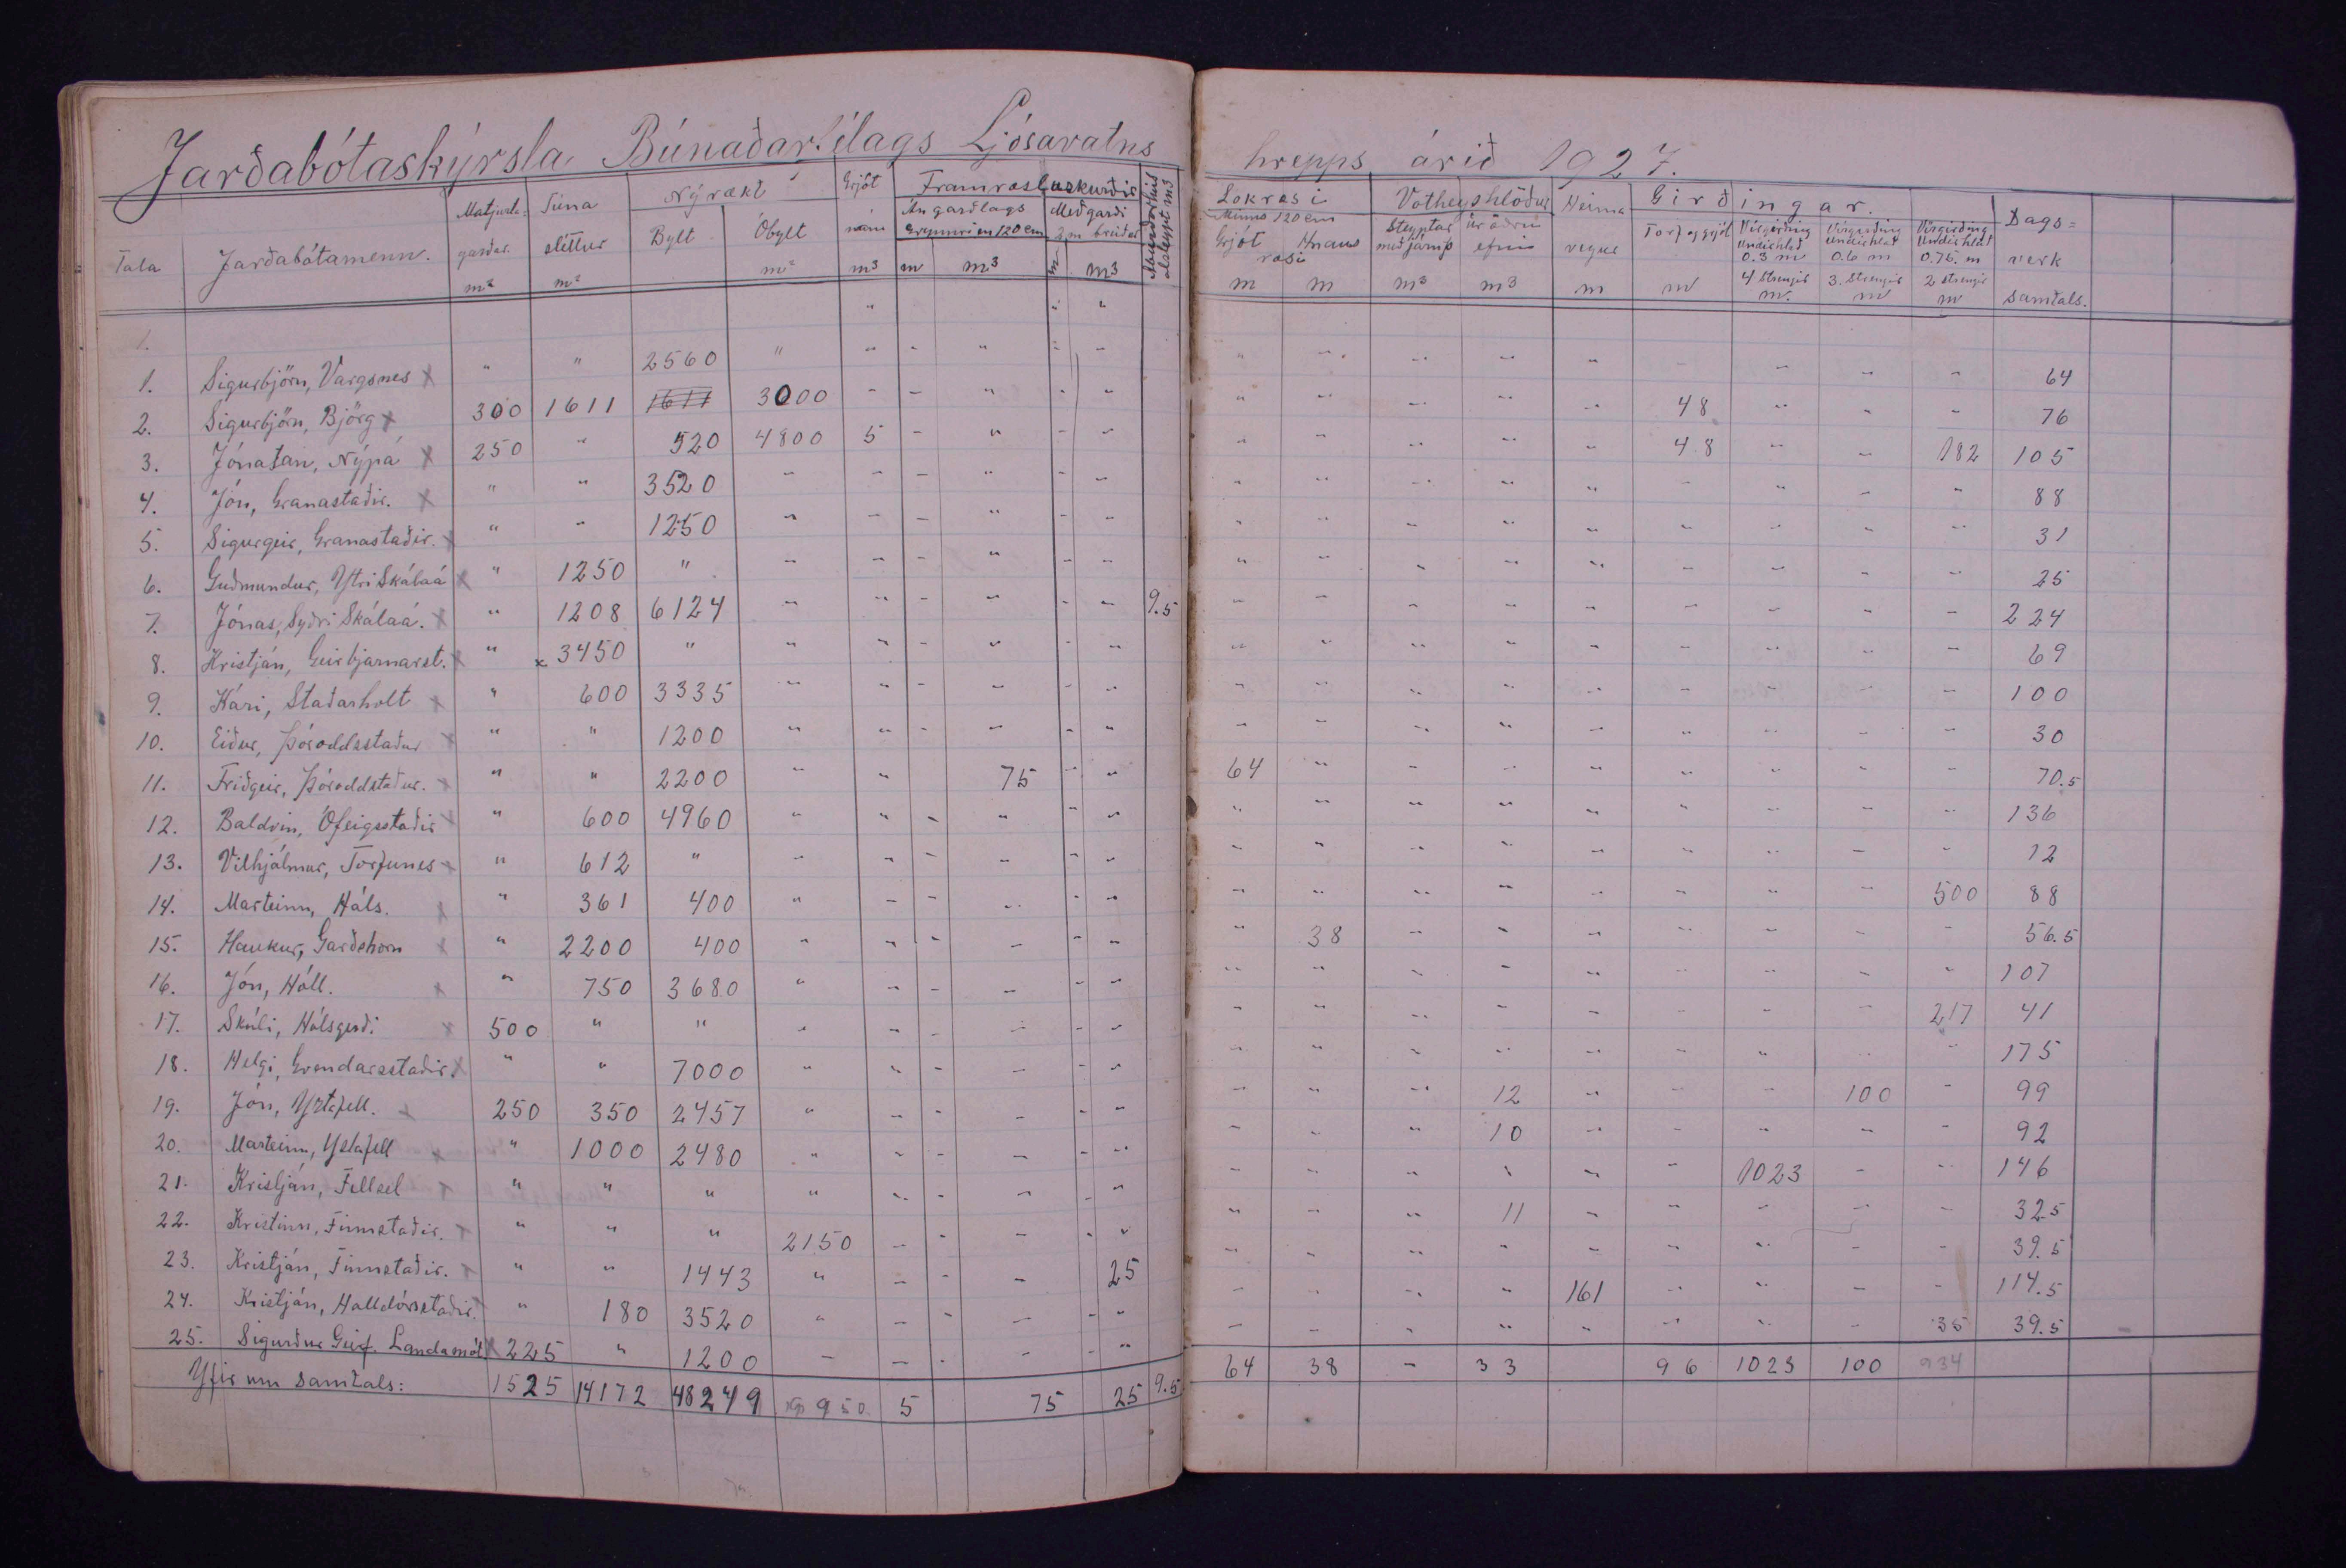 Jarðabótaskýrsla Búnaðarfélags Ljósavatns hrepps árið 1927.
Tala Jarðabótamenn. Matjurta- garðar. m² Túna sléttur m² Nýrækt Bylt Óbylt m² Grjót nám m³ Framræsluskurðir Án garðlags Grynnri en 120 cm m m³ Með garði 2 m breiðar m m³ Lokræsi Minns 120 cm Grjót Hnaus ræsi m m Votheyshlöður Steyptar með jámp m³ úr öðru efni m³ Heima vegur m Girðingar. Torf og grjót m Vírgirðing Undirhlað 0.3 m 4 Strengir m. Vírgirðing Undirhlað 0.6 m 3. Strengir m Vírgirðing Undirhlað 0.75. m 2 strengir m Dags= verk Samtals.
1.
1. Sigurbjörn, Vargsnes x " " 2560 " - - " - - - - - - - - - - - 64
2. Sigurbjörn, Björg x 300 1611 1611 3000 - - " - - " - - - - 48 - - - 76
3. Jónatan, Nýpá x 250 " 520 4800 5 - " - - - - - - - 48 - - 182 105
4. Jón, Granastaðir. x " " 3520 - - - " - - - - - - - - - - - 88
5. Sigurgeir, Granastaðir. x " - 1250 - - - " - - - - - - - - - - - 31
6. Guðmundur, Ytri Skálaá x " 1250 " - - - " - - - - - - - - - - - 25
7. Jónas, Syðri Skálaá. x " 1208 6124 - - - - - - 9.5 - - - - - - - - - 224
8. Kristján, Geirbjarnarst. x " x 3450 " - - - - - - - - - - - - - - - 69
9. Kári, Staðarholt x " 600 3335 - - - - - - - - - - - - - - - 100
10. Eiður, Þóroddsstaður x " " 1200 - - - - - - - - - - - - - - - 30
11. Friðgeir, Þóroddstaður. x " " 2200 - - 75 - - 64 - - - - - - - - 70.5
12. Baldvin, Ófeigsstaðir x " 600 4960 - - - - - - - - - - - - - - - 136
13. Vilhjálmur, Torfunes x " 612 " - - - - - - - - - - - - - - - 12
14. Marteinn, Háls. x " 361 400 - - - - - - - - - - - - - - 500 88
15. Haukur, Garðshorn x " 2200 400 - - - - - - - 38 - - - - - - - 56.5
16. Jón, Hóll. x " 750 3680 - - - - - - - - - - - - - - - 107
17. Skúli, Hálsgerði x 500 " " - - - - - - - - - - - - - - 217 41
18. Helgi, Grendarsstaðir. x " " 7000 - - - - - - - - - - - - - - - 175
19. Jón, Yztafell. x 250 350 2457 - - - - - - - - - 12 - - - 100 - 99
20. Marteinn, Ystafell x " 1000 2480 - - - - - - - - - 10 - - - - - 92
21. Kristján, Fellsel x " " " " - - - - - - - - - - - 1023 - - 146
22. Kristinn, Finnstaðir. x " " " 2150 - - - - - - - - 11 - - - - - 32.5
23. Kristján, Finnstaðir. x " " 1443 " - - - 25 - - - - - - - - - 39.5
24. Kristján, Halldórsstaðir. x " 180 3520 - - - - - - - - - - 161 - - - - 114.5
25. Sigurður Geirf. Landamót. x 225 " 1200 - - - - - - - - - - - - - - 35 39.5
Yfir um Samtals: 1525 14172 48249 9950 5 75 25 9.5 64 38 - 33 96 1023 100 934